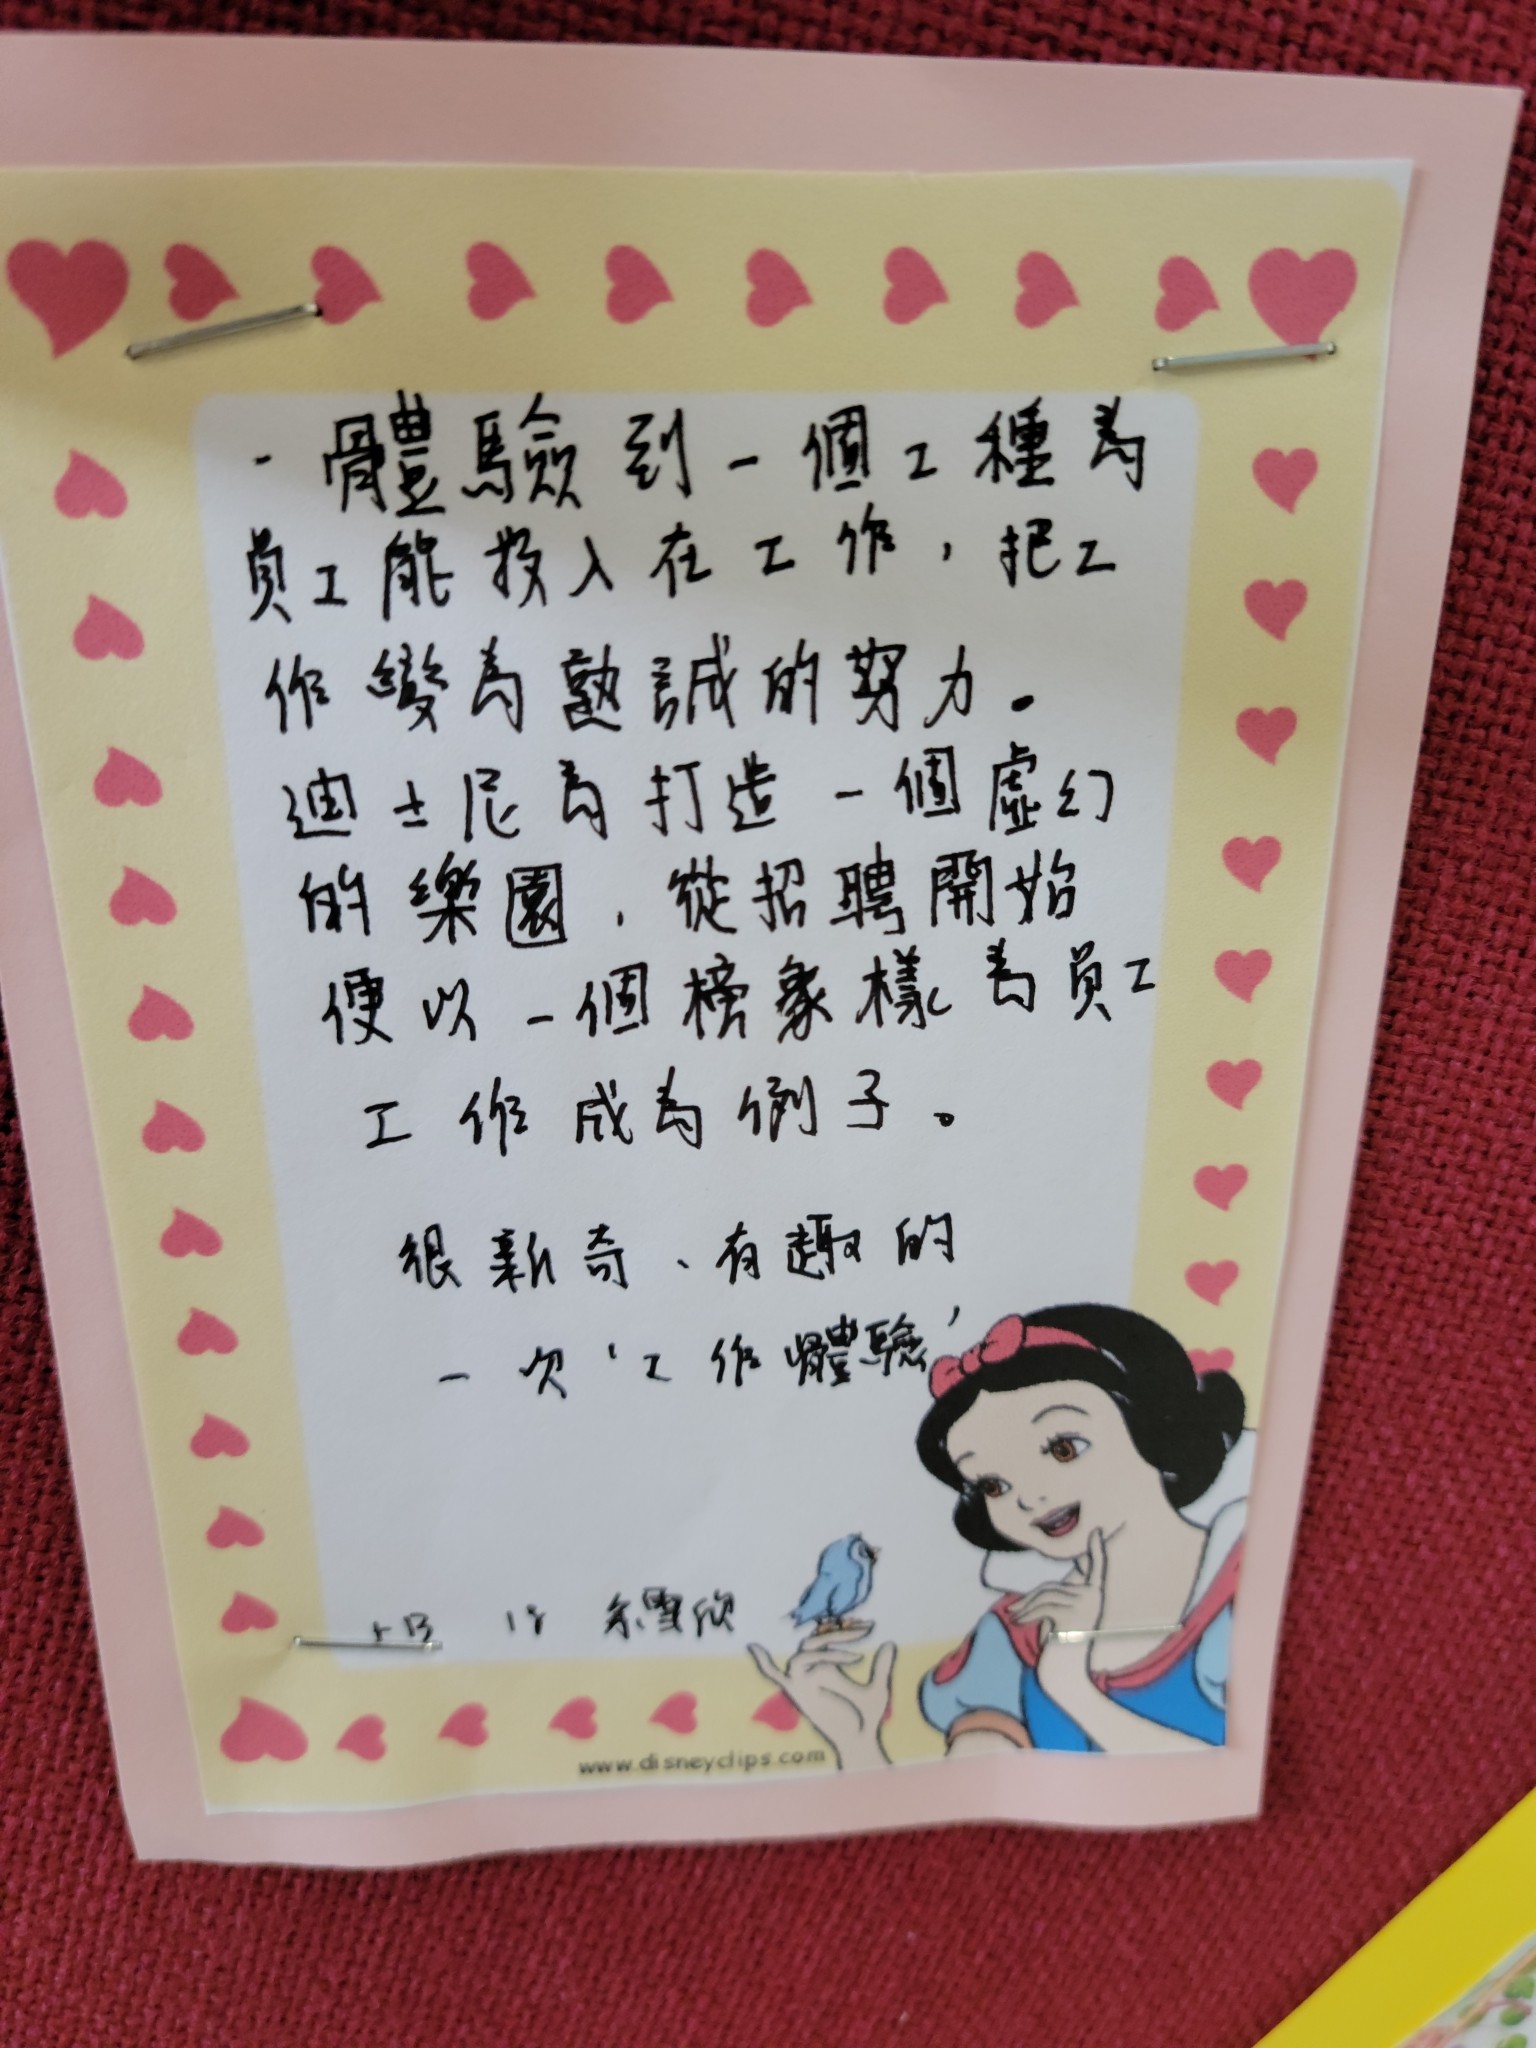 ·體驗到一個工種為
員工能投入在工作，把工
作變為熱誠的努力。
迪士尼為打造一個虛幻
的樂園，從招聘開始
便以一個榜象樣為員工
工作成為例子。
很新奇、有趣的
一次‘工作體驗’
5B 18 余雪欣
www.disneyclips.com